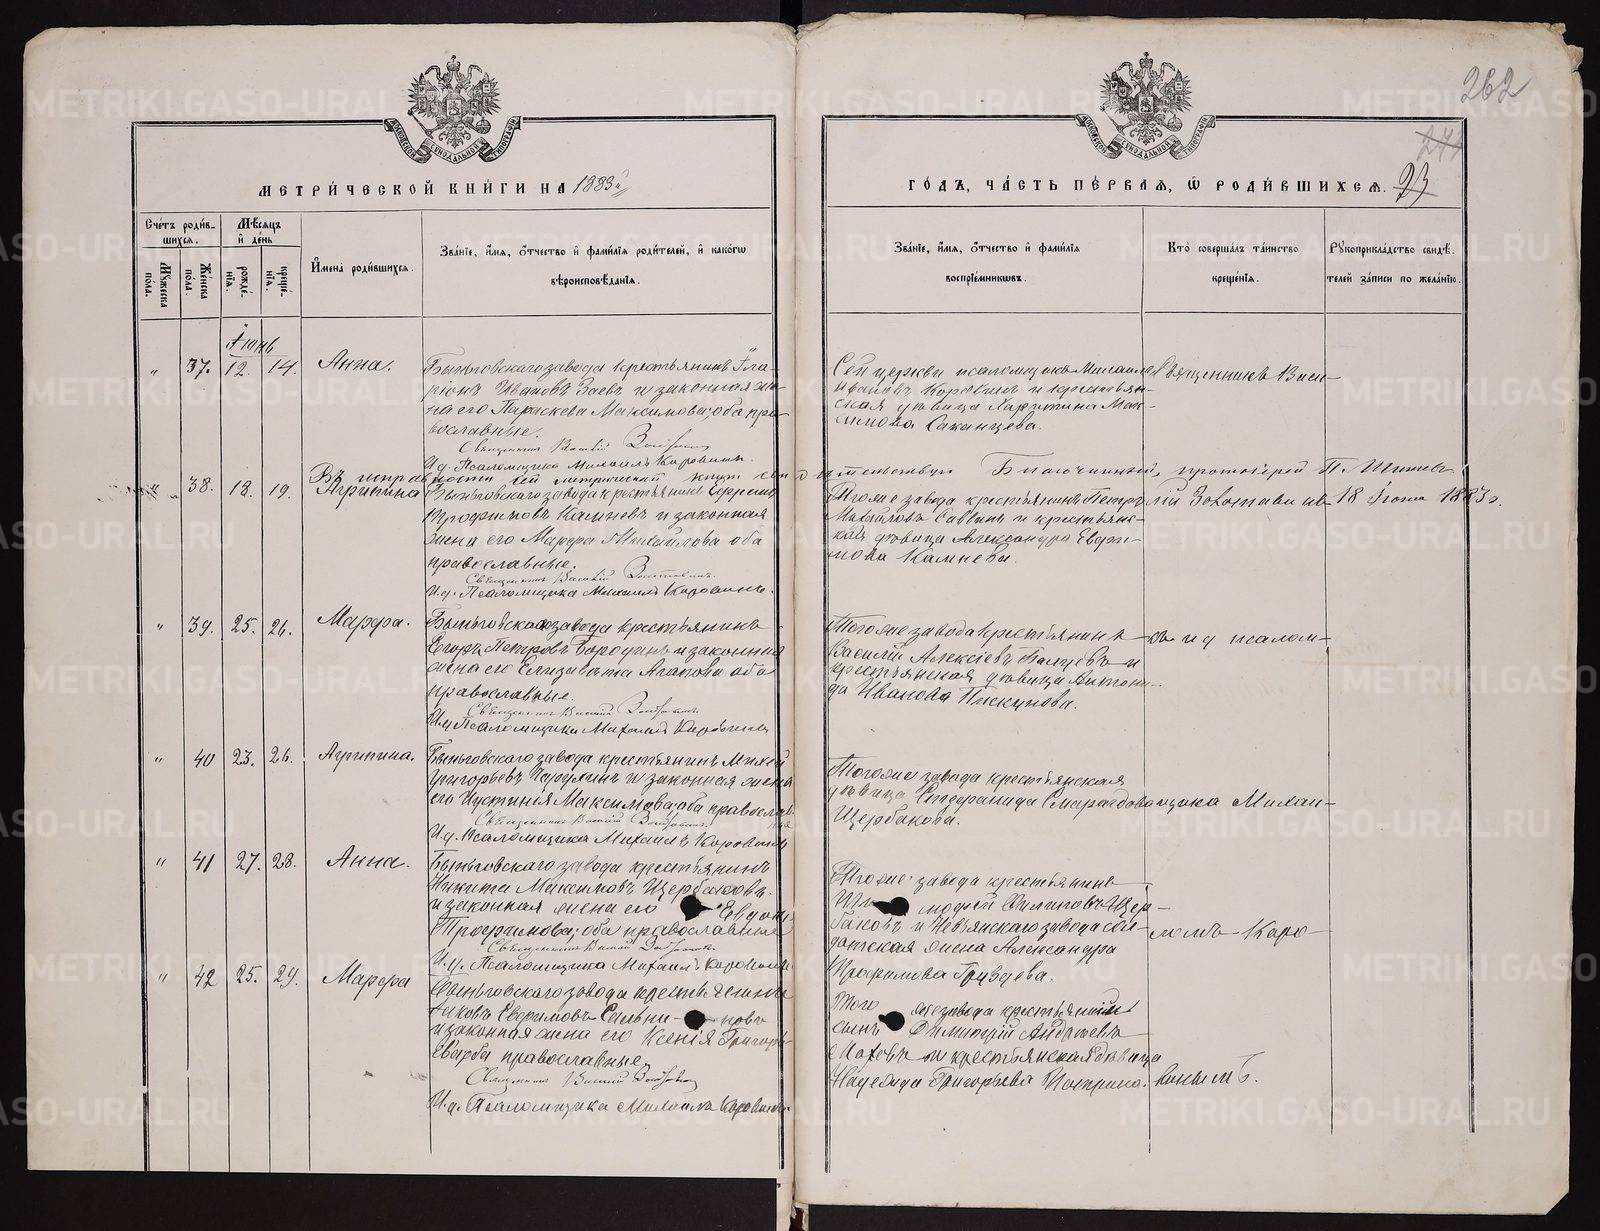 262
274
МЕТРИ́ЧЕСКОЙ КНИ́ГИ НА 1883й
ГО́ДЪ, ЧА́СТЬ ПЕ́РВАЯ, Ѡ҆ РОДИ́ВШИХСЯ. 23
Сче́тъ роди́вшихся.
Мѣ́сяцъ и де́нь
Му́жеска по́ла.
Же́нска по́ла.
рожде́нія.
креще́нія.
И҆мена̀ роди́вшихся.
Зва́нїе, и҆́мя, ѻ҆́тчество и҆ фами́лїѧ роди́телей, и҆ како́гѡ вѣроисповѣ́данїѧ.
Зва́нїе, и҆́мя, ѻ҆́тчество и҆ фами́лїѧ воспрїе́мникѡвъ.
Кто̀ соверша́лъ та́инство креще́нїѧ.
Рꙋкоприкла́дство свидѣ́телей за́писи по жела́нїю.
Іюнь
" 37. 12. 14. Анна.
Быньговскаго завода крестьянинъ Ила-
ріонъ Ивановъ Заевъ и законная же-
на его Параскева Максимова; оба пра-
вославные.
Священникъ Василій
И.д. Псаломщика Михаилъ Коровинъ.
Сей церкви псаломщикъ Михаилъ
Ивановъ Коровинъ и крестьян-
ская дѣвица Харитина Мак-
симова Саканцева.
Священникъ Васи-
Въ исправности сей метрической книги свидѣтельствую Благочинный, протоіерей П.
18 Іюня 1883 г.
" 38. 18. 19. Агрипина
Быньговскаго завода крестьянинъ Ефремъ
Трофимовъ Камневъ и законная
жена его Марфа Михайлова оба
православные.
Священникъ Василій
И.д. Псаломщика Михаилъ Коровинъ.
Тогоже завода крестьянинъ Петръ
Михайловъ Саввинъ и крестьянс-
кая дѣвица Александра Ефри-
мова Камнева.
лій Золотавинъ
" 39. 25. 26. Марфа.
Быньговскаго завода крестьянинъ
Егоръ Петровъ Бородинъ и законная
жена его Елизавета Агапова оба
православные.
Священникъ Василій
И.д. Псаломщика Михаилъ Коровинъ
Тогоже завода крестьянинъ
Василій Алексіевъ и
крестьянская дѣвица Антони-
да Иванова Пискунова.
съ и д псалом-
" 40 23. 26. Агрипина.
Быньговскаго завода крестьянинъ Михей
Григорьевъ и законная жена
его Иустинія Максимова; оба православ-
ные
Священникъ Василій
И.д. Псаломщика Михаилъ Коровинъ
Тогоже завода крестьянская
дѣвица Стефанида Смарагдова
Щербакова.
щика Михаи-
" 41 27. 28. Анна.
Быньговскаго завода крестьянинъ
Никита Максимовъ Щербаковъ
и законная жена его Евдок
Трофимова; оба православные
Священникъ Василій
И.д. Псаломщика Михаилъ Коровинъ
Тогоже завода крестьянинъ
Филиповъ Щер-
баковъ и Невьянскаго завода сол-
датская жена Александра
Трофимова
ломъ Каро
" 42 25. 29. Марфа
Быньговскаго завода крестьянинъ
Яковъ Ефримовъ
и законная жена его Ксенія Григорь-
ева; оба православные
Священникъ Василій
И.д. Псаломщика Михаилъ Коровинъ.
Того же завода крестьянинъ
сынъ Димитрій Андреевъ
и крестьянская дѣвица
Надежда Григорьева
винымъ.
МОСКОВСКОЙ СѴНОДАЛЬНОЙ ТИПОГРАФІИ
МОСКОВСКОЙ СѴНОДАЛЬНОЙ ТИПОГРАФІИ
METRIKI.GASO-URAL.RU